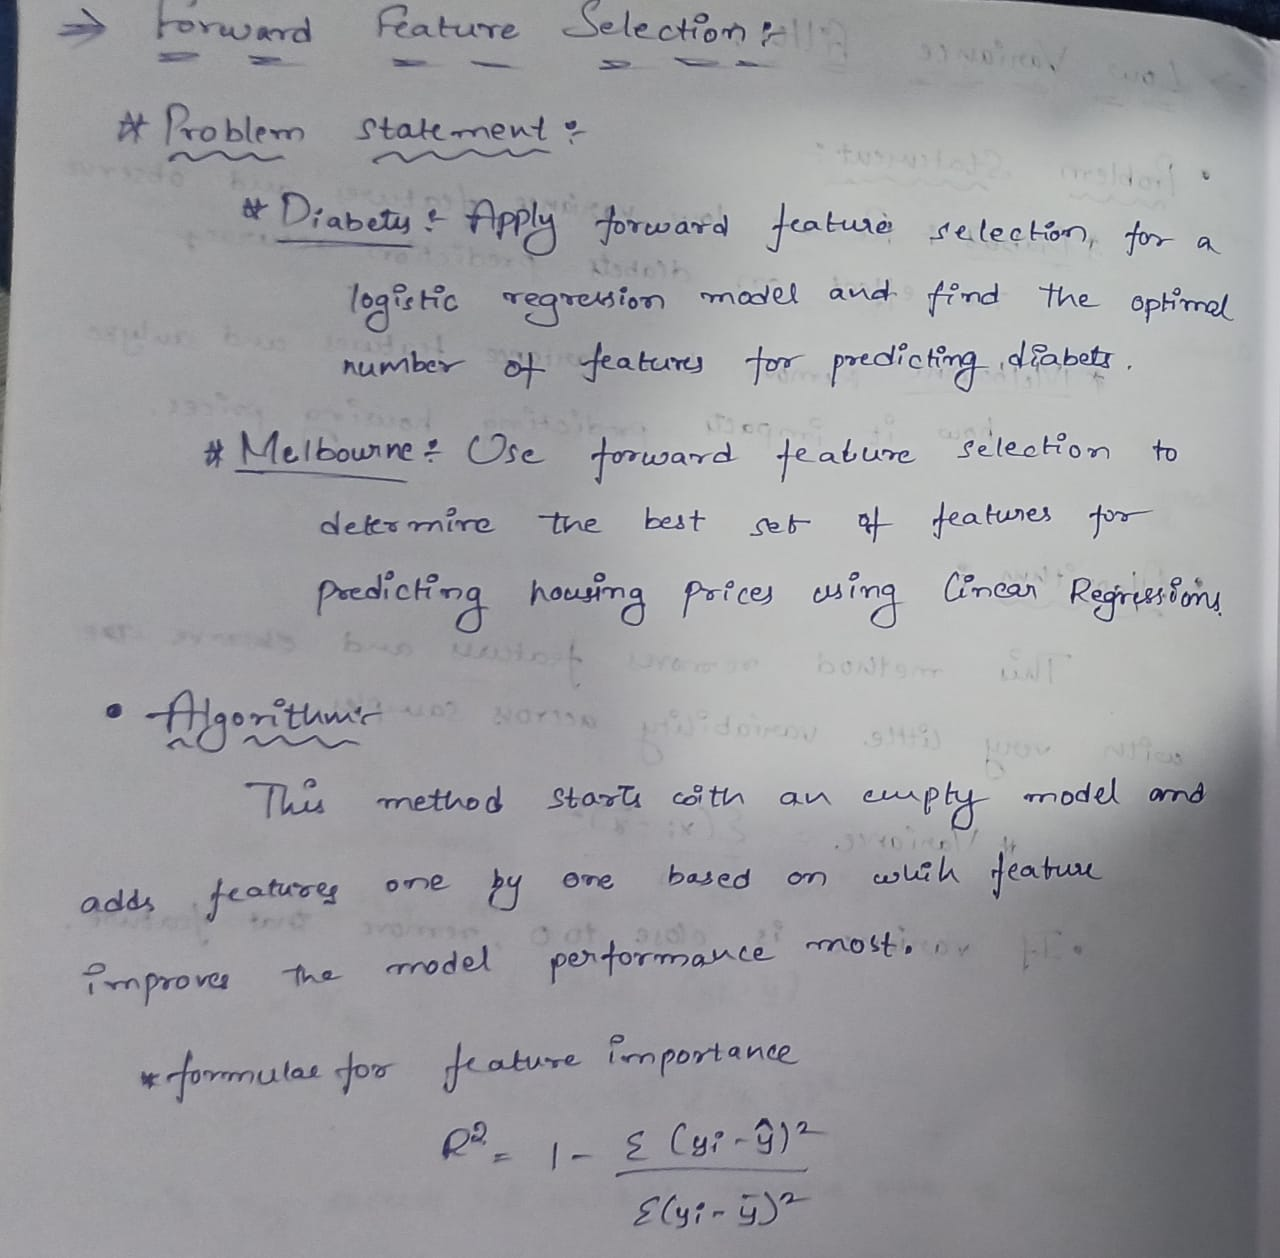 → Forward Feature Selection :-
* Problem statement :-
* Diabety :- Apply forward feature selection, for a
logistic regression model and find the optimal
number of features for predicting diabets.
* Melbourne :- Use forward feature selection to
determine the best set of features for
predicting housing prices using linear Regressions.
• Algorithm :-
This method starts with an empty model and
adds features one by one based on whih feature
improves the model performance most.
* formulae for feature importance
R² = 1 - Σ (yi - ŷ)²
Σ(yi - ȳ)²